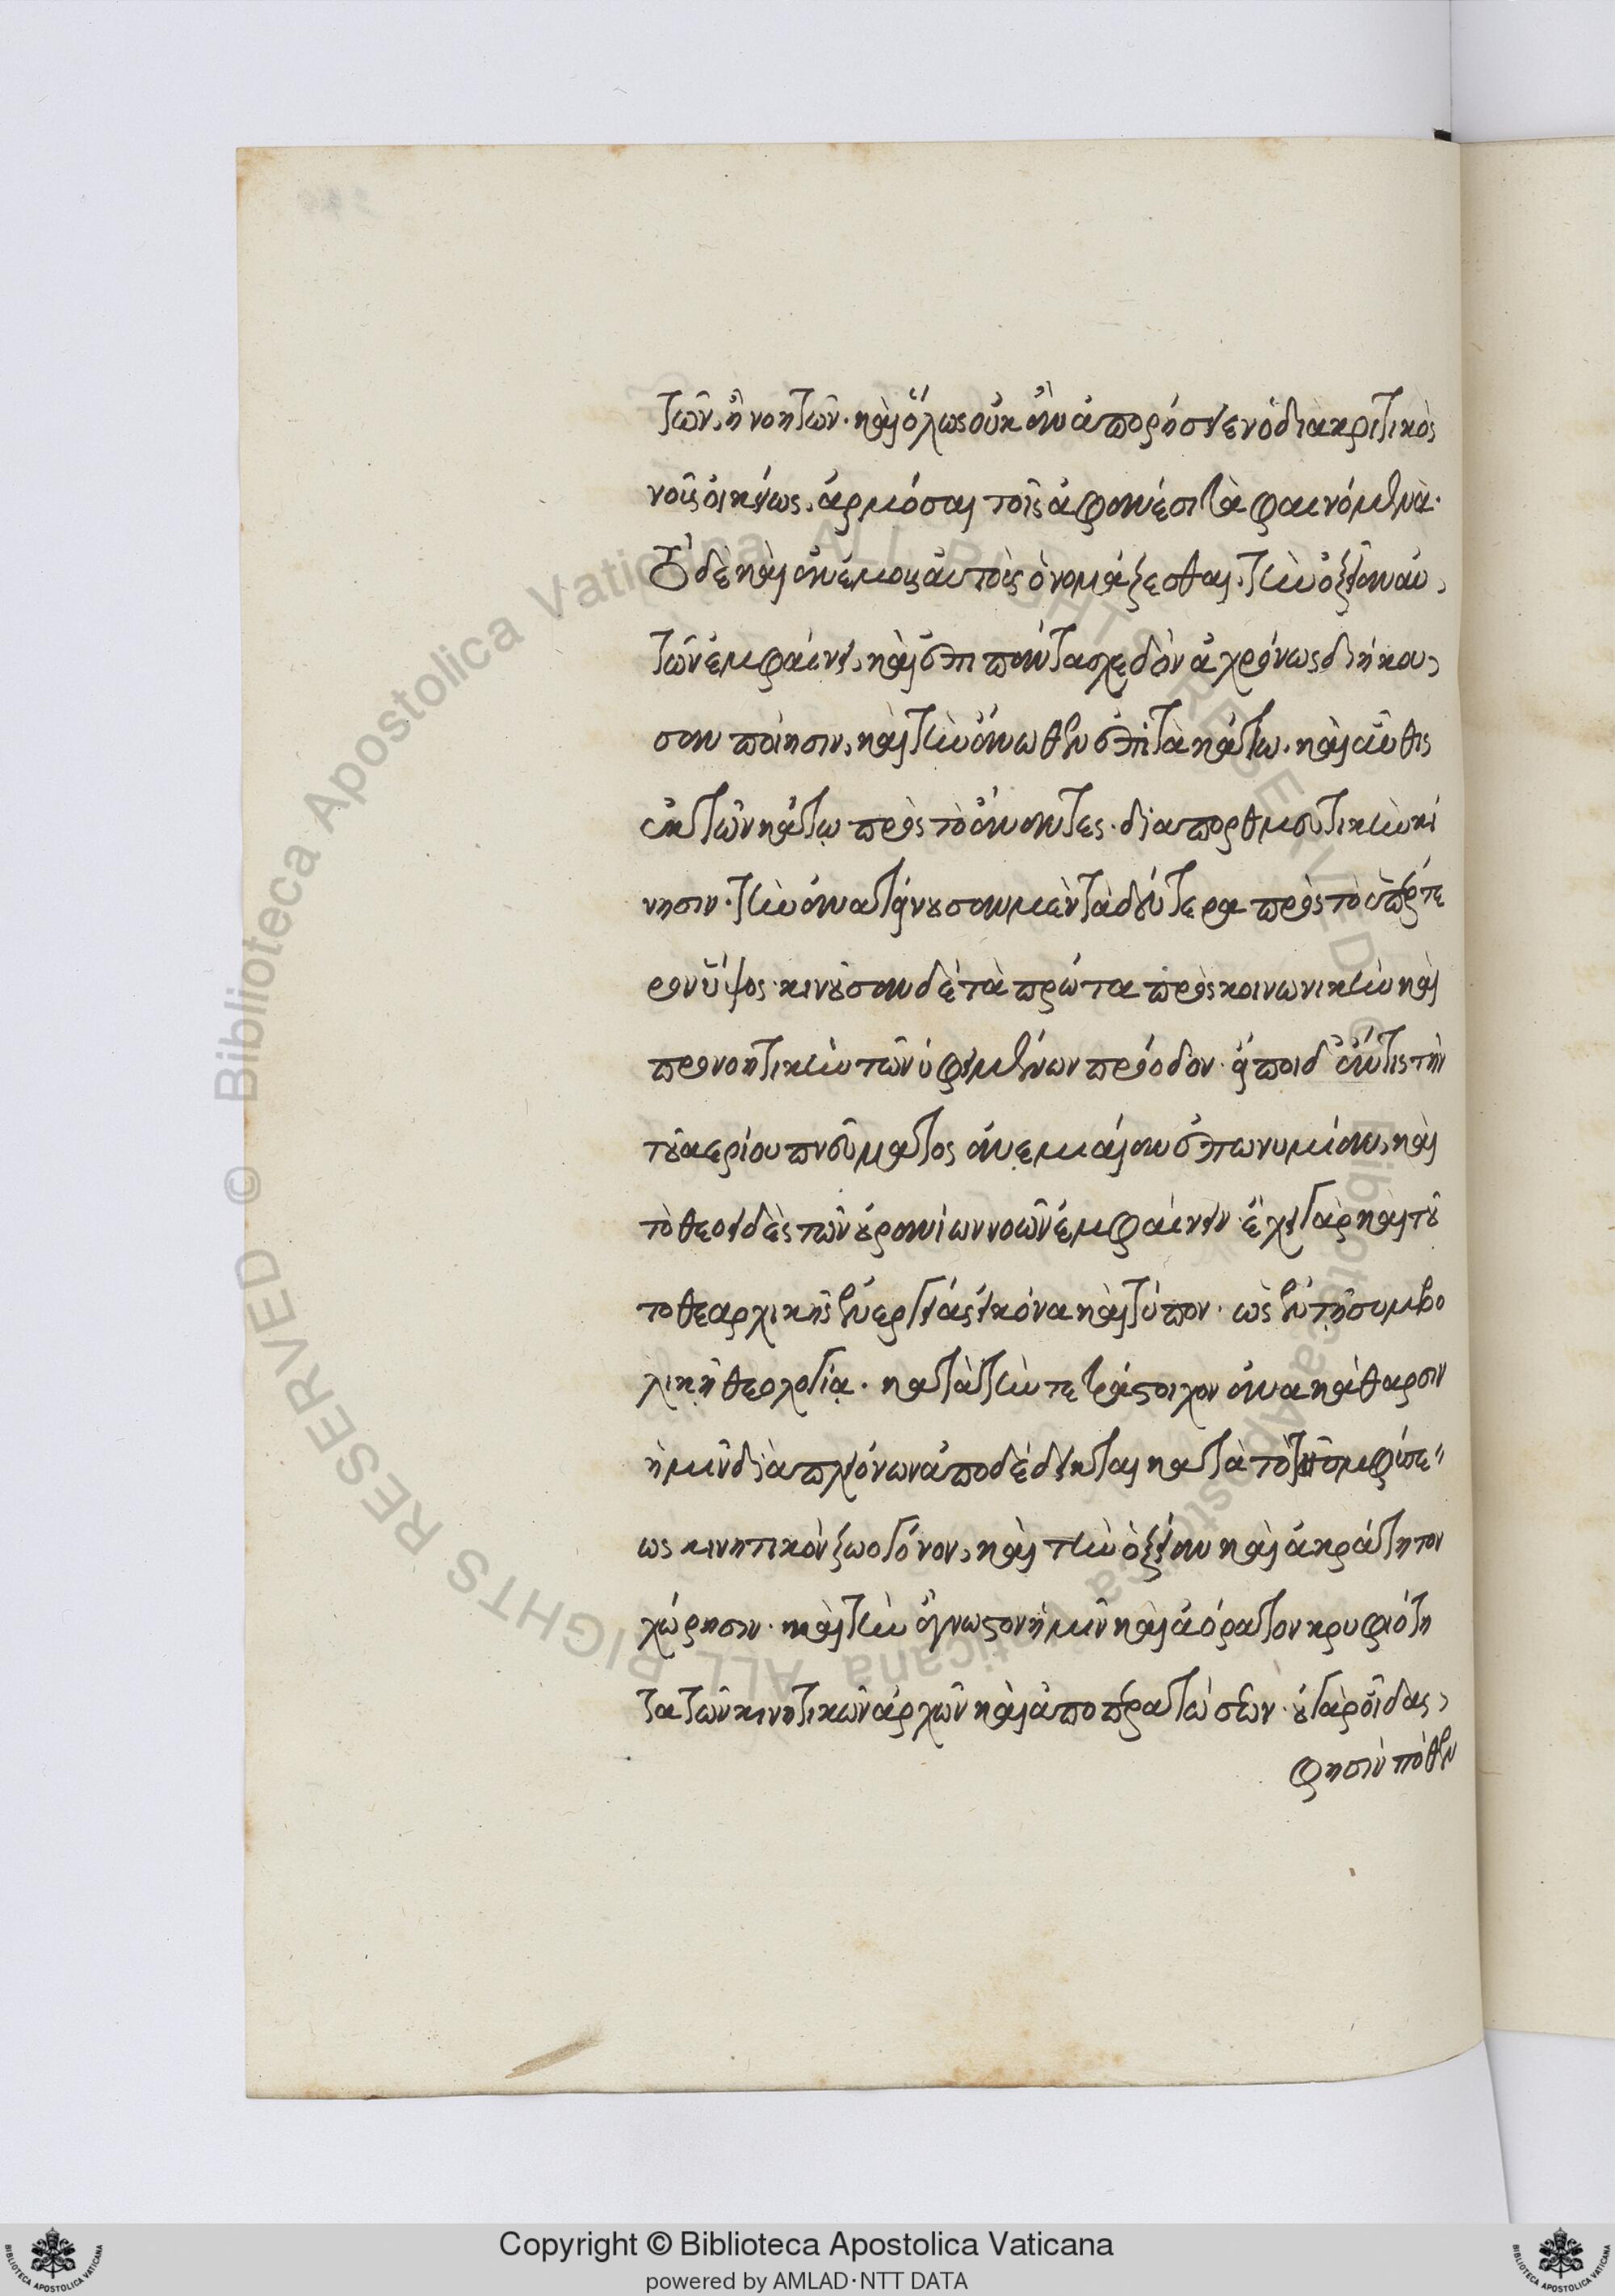 των, ἢ νοητῶν. καὶ ὅλως οὐκ ἂν ἀπορήσειεν ὁ διακριτικὸς
νοῦς οἰκείως, ἁρμόσαι τοῖς ἀφανέσι τὰ φαινόμενα.
Τὸ δὲ καὶ ἀνέμους αὐτοὺς ὀνομάζεσθαι, τὴν ὀξεῖαν αὐ,
τῶν ἐμφαίνει, καὶ ἐπὶ πάντα σχεδὸν ἀχρόνως διήκου,
σαν ποίησιν, καὶ τὴν ἄνωθεν ἐπὶ τὰ κάτω, καὶ αὖθις
ἐκ τῶν κάτω πρὸς τὸ ἄναντες. διαπορθμευτικὴν κί
νησιν. τὴν ἀνατείνουσαν μὲν τὰ δεύτερα πρὸς τὸ ὑπέρτε
ρον ὕψος. κινοῦσαν δὲ τὰ πρῶτα πρὸς κοινωνικὴν καὶ
προνοητικὴν τῶν ὑφειμένων πρόοδον. εἴποι δ' ἄν τις τὴν
τοῦ ἀερίου πνεύματος ἀνεμιαίαν ἐπωνυμίαν, καὶ
τὸ θεοειδὲς τῶν οὐρανίων νοῶν ἐμφαίνειν. ἔχει γὰρ καὶ τοῦ
το θεαρχικῆς ἐνεργείας εἰκόνα καὶ τύπον. ὡς ἐν τῇ συμβο
λικῇ θεολογίᾳ. κατὰ τὴν τετράστοιχον ἀνακάθαρσιν
ἡμῖν διὰ πλειόνων ἀποδέδεικται κατὰ τὸ τῆς φύσε
ως κινητικὸν ζωογόνον, καὶ τὴν ὀξεῖαν καὶ ἀκράτητον
χώρησιν. καὶ τὴν ἄγνωστον ἡμῖν καὶ ἀόρατον κρυφιότη
τα τῶν κινητικῶν ἀρχῶν καὶ ἀποπερατώσεων. οὐ γὰρ οἶδας,
φησὶν πόθεν
Copyright © Biblioteca Apostolica Vaticana
powered by AMLAD·NTT DATA